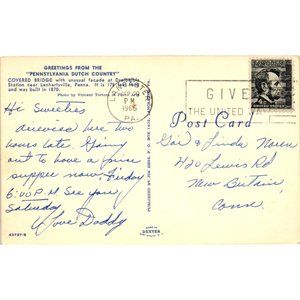 GREETINGS FROM THE
"PENNSYLVANIA DUTCH COUNTRY"
COVERED BRIDGE with unusual facade at
Station near Lenhartsville, Penna. It is
and was built in 1870.
Photo by Vincent
Hi Sweeties
arrived here two
hours late. Going
out to have a
supper now, Friday
6:00 P.M. See you
Saturday
Love Daddy
43727-B
PM
1966
PA
GIVE
THE UNITED WAY
Post Card
Gail & Linda
420 Lewis Rd
New Britain
Conn.
DEXTER